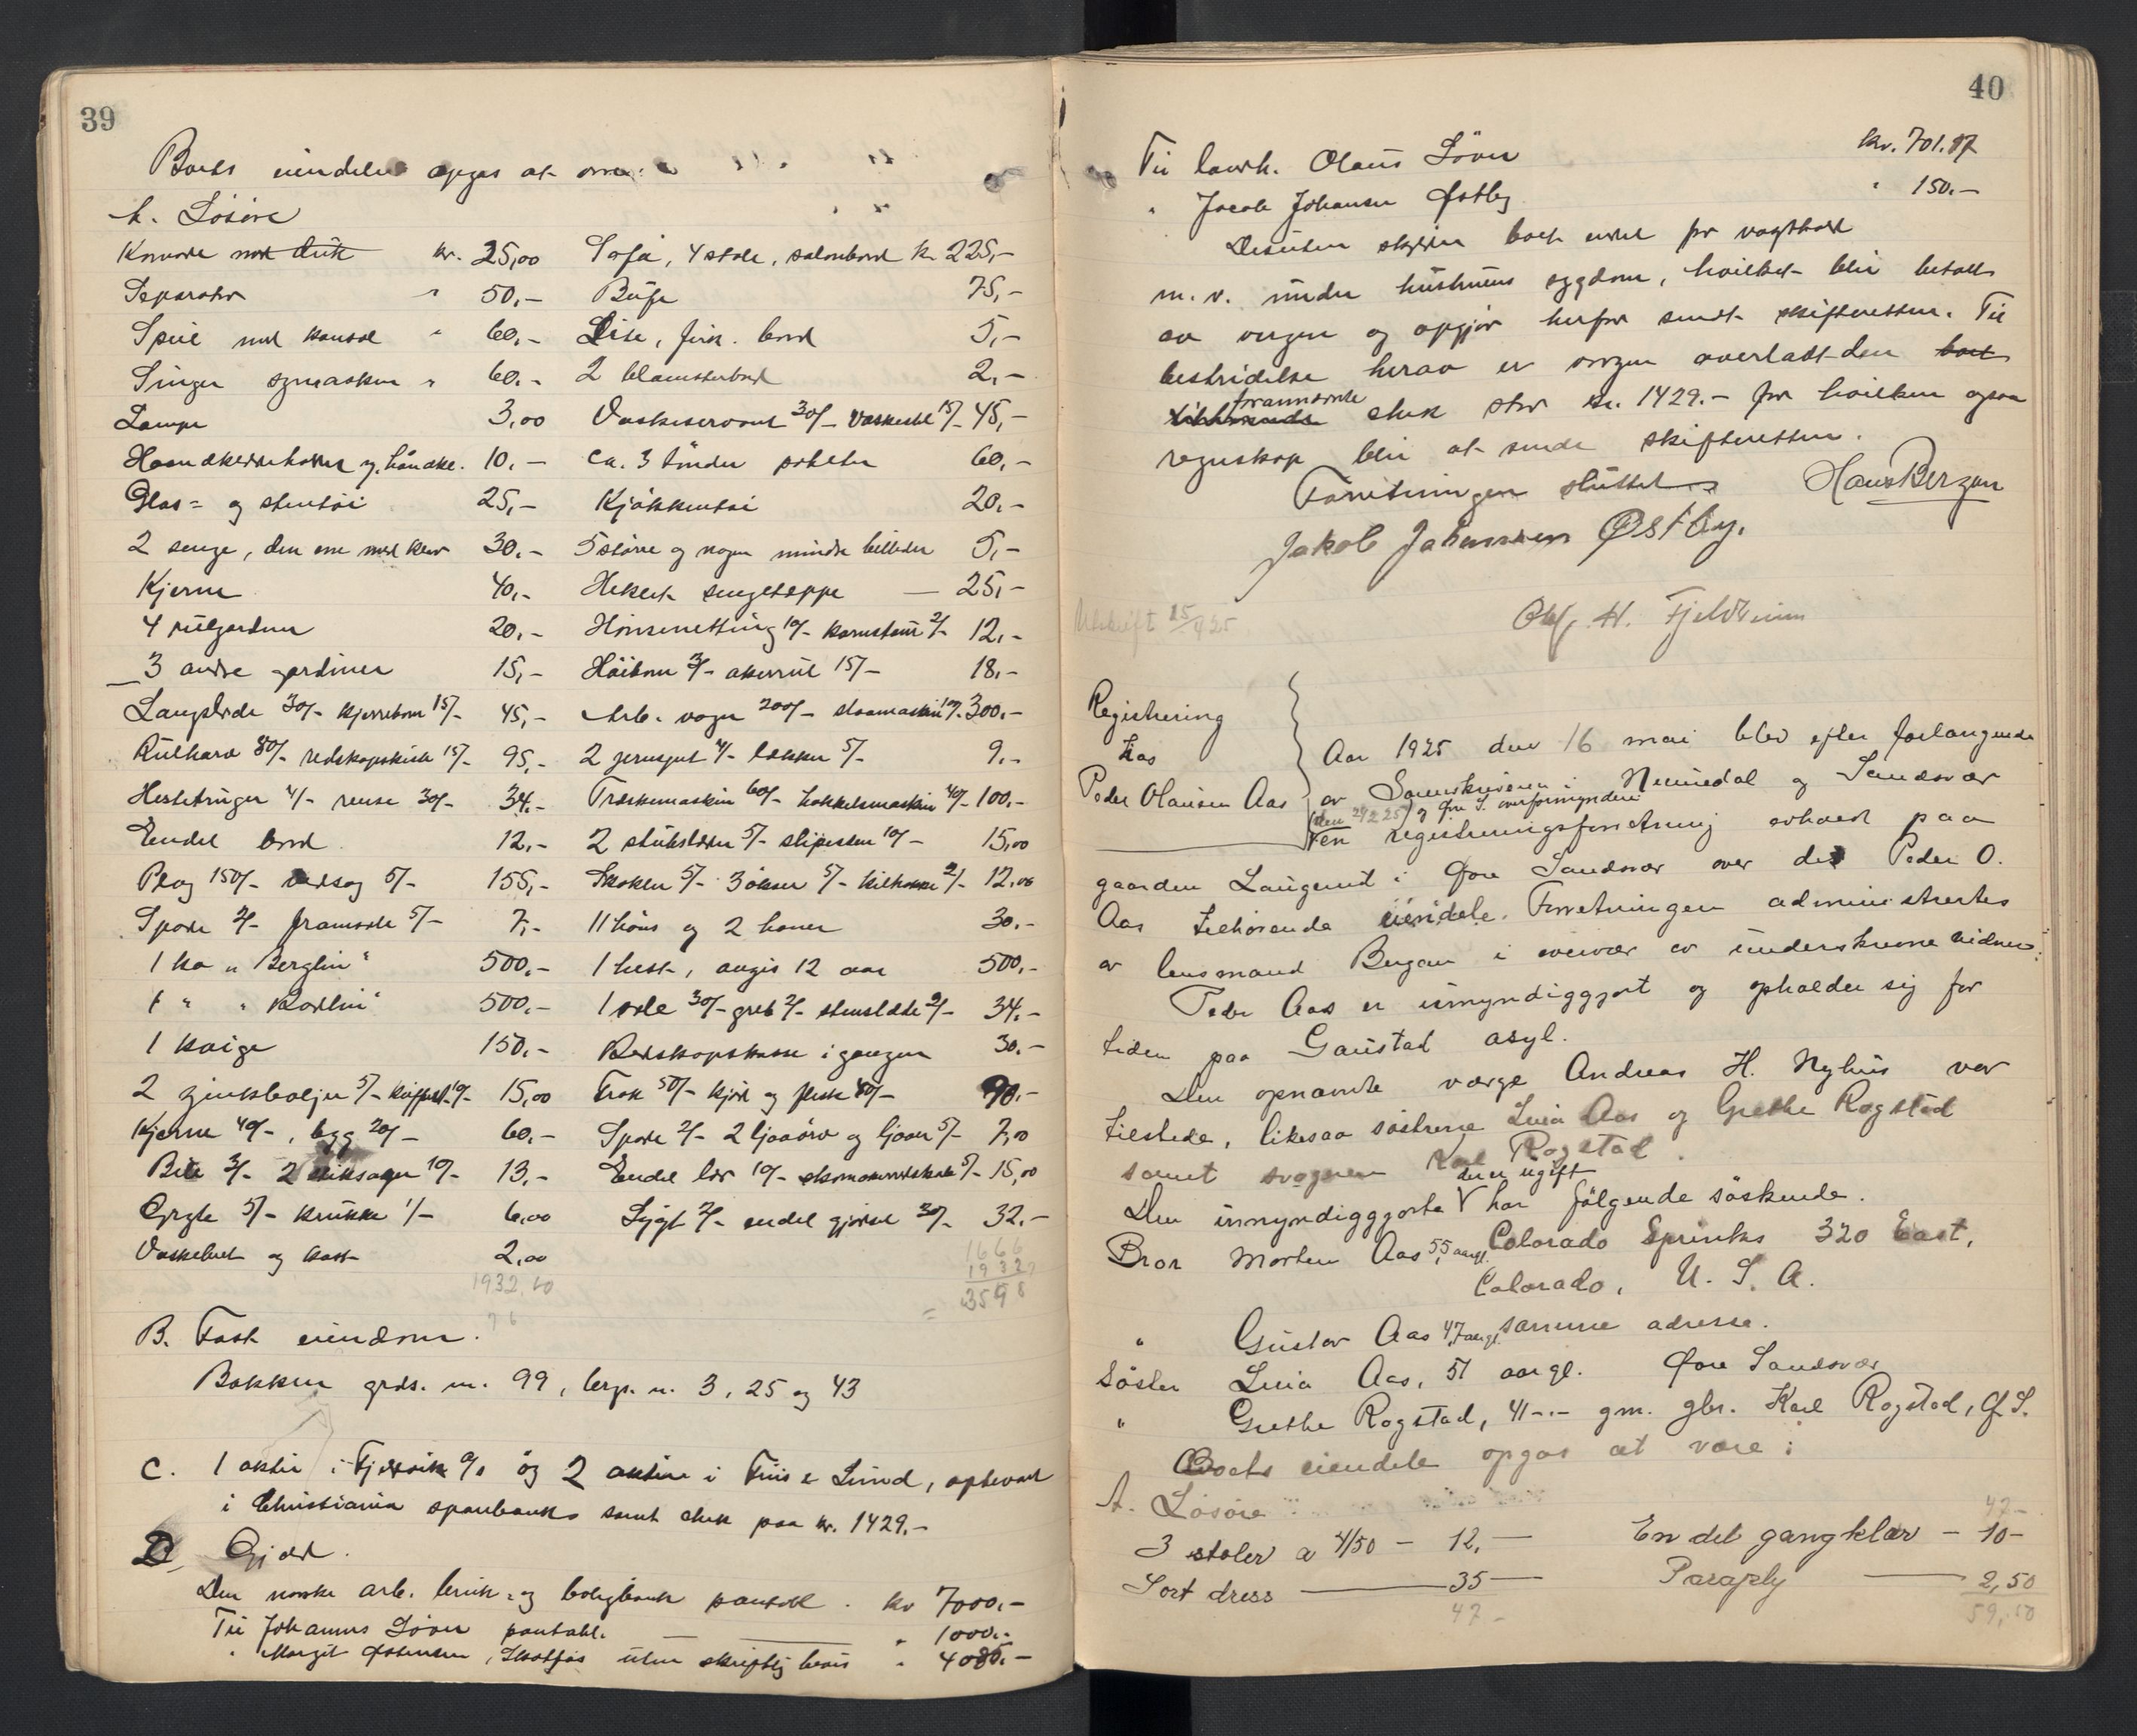 39
Boets eiendele opges at være:
A. Løsøre
Komode med duk kr. 25,00
Separator " 50,-
Speil med konsol " 60,-
Singer symaskin " 60,-
Lampe 3,00
Haandkjærrehavner y. håndke. 10,-
Glas= og stentøi 25,-
2 senge, den ene med klær 30,-
Kjerne 40,-
4 rulgardiner 20,-
3 andre gardiner 15,-
Langslede 30/- kjerrebom 15/- 45,-
Rulharv 80/- redskapskiste 15/- 95,-
Hestetruger 4/- rense 30/- 34,-
Endel bord 12,-
Plog 150/- vedsag 5/- 155,-
Spade 2/- framslede 5/- 7,-
1 ko "Berglin" 500,-
1 " "Rødlin" 500,-
1 kvige 150,-
2 zinkbaljer 5/- koffert 10/- 15,00
Kjerne 40/-, bygg 20/- 60,-
Bile 3/- 2 stiksager 10/- 13,-
Gryte 5/- krukke 1/- 6,00
Vaskebret og kost 2,00
1932,00
Sofa, 4 stole, salonbord kr. 225,-
Bufe 75,-
Lite, firk. bord 5,-
2 blomsterbord 2,-
Vaskeservant 30/- vaskestel 15/- 45,-
ca. 3 tønder poteter 60,-
Kjøkkentøi 20,-
5 større og nogen mindre billeder 5,-
Heklet sengeteppe — 25,-
Hønsenetting 10/- kornstaur 2/- 12,-
Høibom 3/- akerrul 15/- 18,-
Arb. vogn 200/- slaamaskin 100/- 300,-
2 jernspet 4/- lækker 5/- 9,-
Træskemaskin 60/- hakkelsmaskin 40/- 100,-
2 stubsleder 5/- slipesten 10/- 15,00
Skokler 5/- 3 økser 5/- kilhakke 2/- 12,00
11 høns og 2 haner 30,-
1 hest, angis 12 aar 500,-
1 sele 30/- greb 2/- stenslede 2/- 34,-
Redskapskasse i gangen 30,-
Trok 50/- kjøt og flesk 40/- 90,-
Spade 2/- 2 ljaaorv og ljaaer 5/- 7,00
Endel lær 10/- skomakerredskab 5/- 15,00
Lygt 2/- endel gjødsel 30/- 32,-
1666
1932
= 3598
B. Fast eiendom.
Bakken grds. nr. 99, brgs. nr. 3, 25 og 43
C. 1 aktie i Fjeldvik A/s og 2 aktier i Friis & Lund, opbevart
i Christiania sparebank samt chek paa kr. 1429.-
D. Gjæld.
Den norske arb. bruk= og boligbank pantobl. kr 7000,-
Til Johannes Løver pantobl. " 1000,-
" Margit Østensen, Skotfos uten skriftlig bevis " 4085.-
40
Til landh. Olaus Løver kr. 701.87
" Jacob Johansen Østby " 150.-
Desuten skylder boet endel for vagthold
m. v. under hustruens sygdom, hvilket blir betalt
av vergen og opgjør herfor sendt skifteretten. Til
bestridelse herav er vergen overlatt den boet
tilhørende forannævnte chek stor kr. 1429.- for hvilken ogsaa
regnskap blir at sende skifteretten.
Forretningen sluttet Hans Bergan
Jakob Johansen Østby.
Olaf H. Fjeldheim
Utskrift 25/9 25
Registrering
hos
Peder Olausen Aas
Aar 1925 den 16 mai blev efter forlangende
av Sorenskriveren i Numedal og Sandsvær
(den 24 2 25) og Øvre S. overformynderi
en registreringsforretning avholdt paa
gaarden Laugerud i Øvre Sandsvær over de Peder O.
Aas tilhørende eiendele. Forretningen administrertes
av lensmand Bergan i overvær av underskrevne vidner:
Peder Aas er umyndiggjort og opholder sig for
tiden paa Gaustad asyl.
Den opnævnte værge Andreas H. Nyhus var
tilstede, likesaa søstrene Lina Aas og Grethe Rogstad
samt svogeren Karl Rogstad.
Den umyndiggjorte V der er ugift har følgende søskende.
Bror Morten Aas 55 aargl. Colorado Sprinks 320 East,
Colorado, U. S. A.
" Gustav Aas 47 aargl. samme adresse.
Søster Lina Aas, 51 aar gl. Øvre Sandsvær
" Grethe Rogstad, 41 -"- gm. gbr. Karl Rogstad, Ø. S.
Boets eiendele opgas at være:
A. Løsøre
3 stoler a 4/50 - 12,-
Sort dress — 35 —
47 -
47 -
En del gangklær - 10 -
Paraply — 2,50
59,50